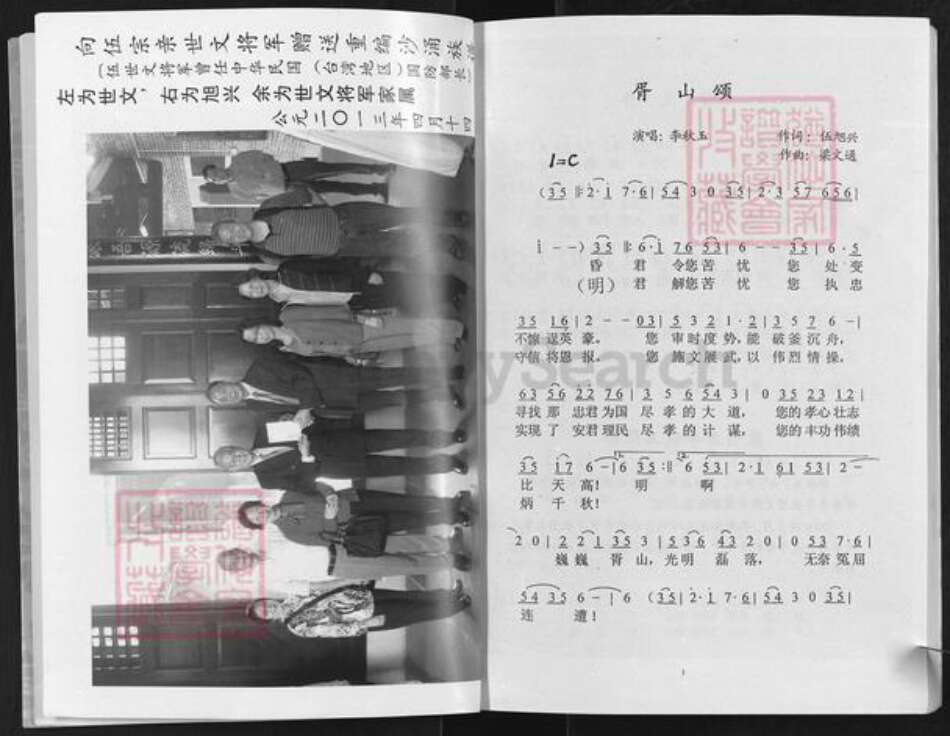 向伍宗亲世文将军赠送重编沙涌族
(伍世文将军曾任中华民国(台湾地区)国防部长)
左为世文,右为旭兴 余为世文将军家属
公元二〇一三年四月十四
胥山颂
演唱:李秋玉 作词:伍旭兴
作曲:梁文通
1=C
(35 ‖: 2·i 7·6 | 54 3 0 35 | 2·3 57 656 |
i - -) 35 ‖: 6·i 76 53 | 6 - - 35 | 6·5
昏 君 令您苦 忧 您 处变
(明) 君 解您苦 忧 您 执忠
35 16 | 2 - - 03 | 5 3 2 1·2 | 3 5 7 6 - |
不惊 逞英 豪。 您 审时度 势,能 破釜沉舟,
守信 将恩 报。 您 施文展 武,以 伟烈情操,
63 56 22 76 | 3 5 6 54 3 | 0 35 23 12 |
寻找 那 忠君为国 尽 孝的大道, 您的孝心壮志
实现 了 安君理民 尽 孝的计谋, 您的丰功伟绩
35 17 6 - | 6 35 :‖ 6 53 | 2·1 61 53 | 2 -
比 天 高! 明 啊
炳 千 秋!
2 0 | 2 2 1 35 3 | 536 43 2 0 | 0 53 7·6 |
巍 巍 胥 山,光明 磊 落, 无奈 冤屈
54 35 6 - | 6 (35 | 2·i 7·6 | 54 3 0 35 |
连 遭!
1